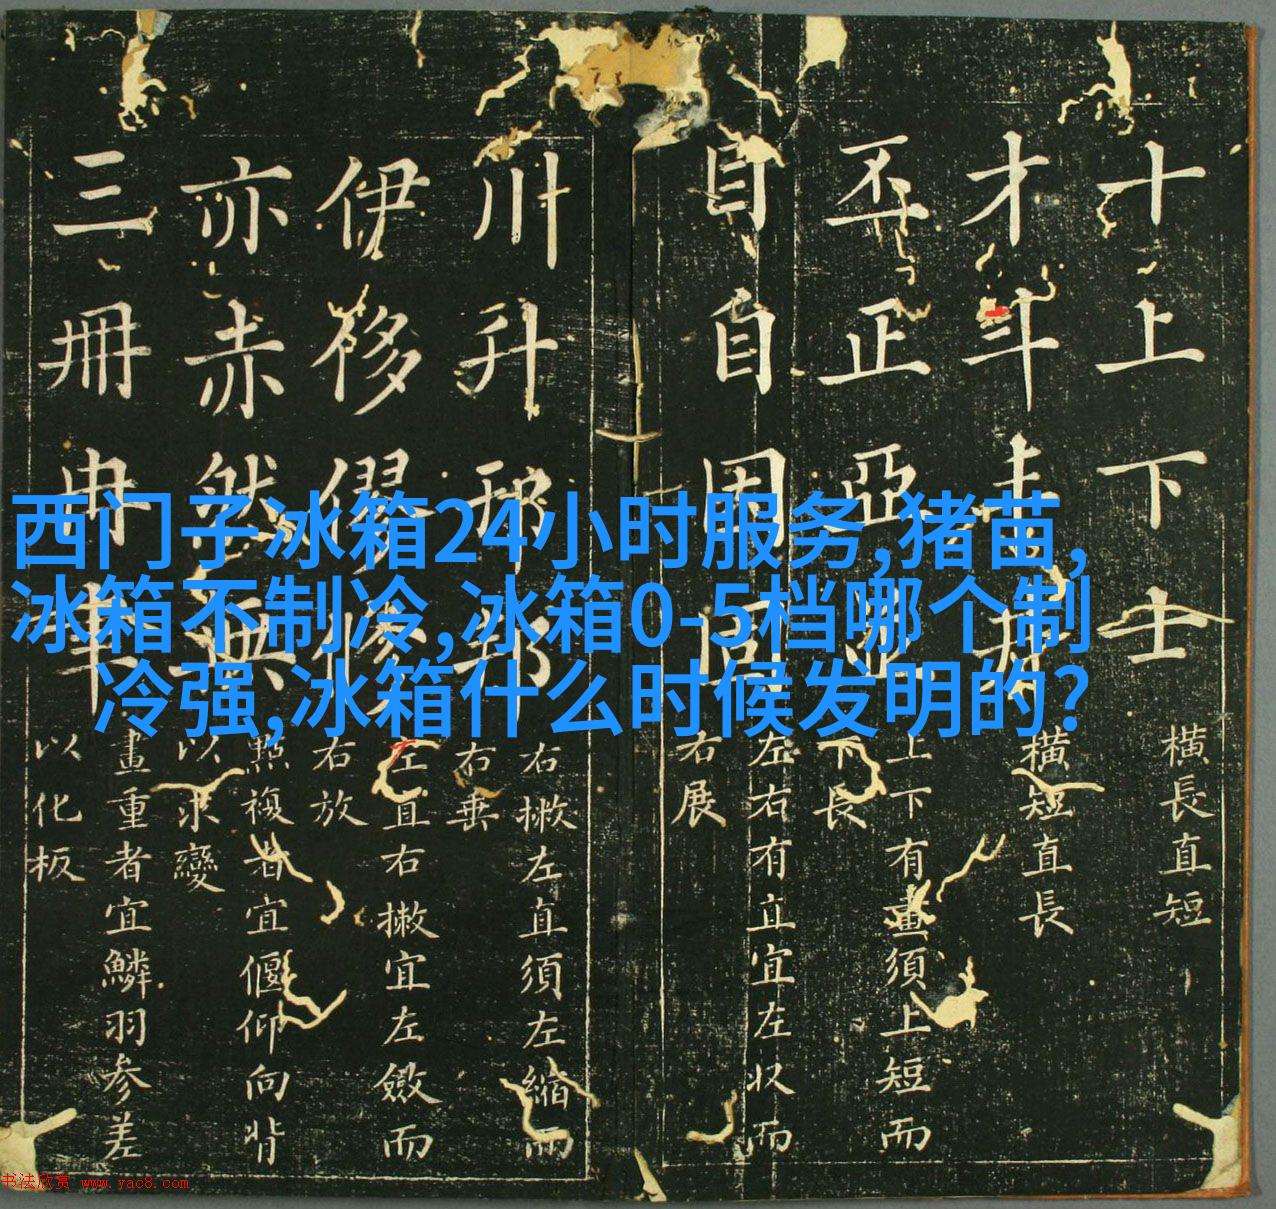 西门子冰箱24小时服务,猪苗,
冰箱不制冷,冰箱0-5档哪个制
冷强,冰箱什么时候发明的?
十上下士
橫長直短
才斗井
橫短直長
丕正亞
上下有畫須上短而
下長
目自因固
左右有直宜左收而
右展
川升邢邦
右撇左直須左縮而
右垂
伊侈僇修
左直右撇宜左斂而
右放
亦赤然無
點複者宜偃仰向背
以求變
三冊冉
畫重者宜鱗羽参差
以化板
书法欣赏 www.yac8.com